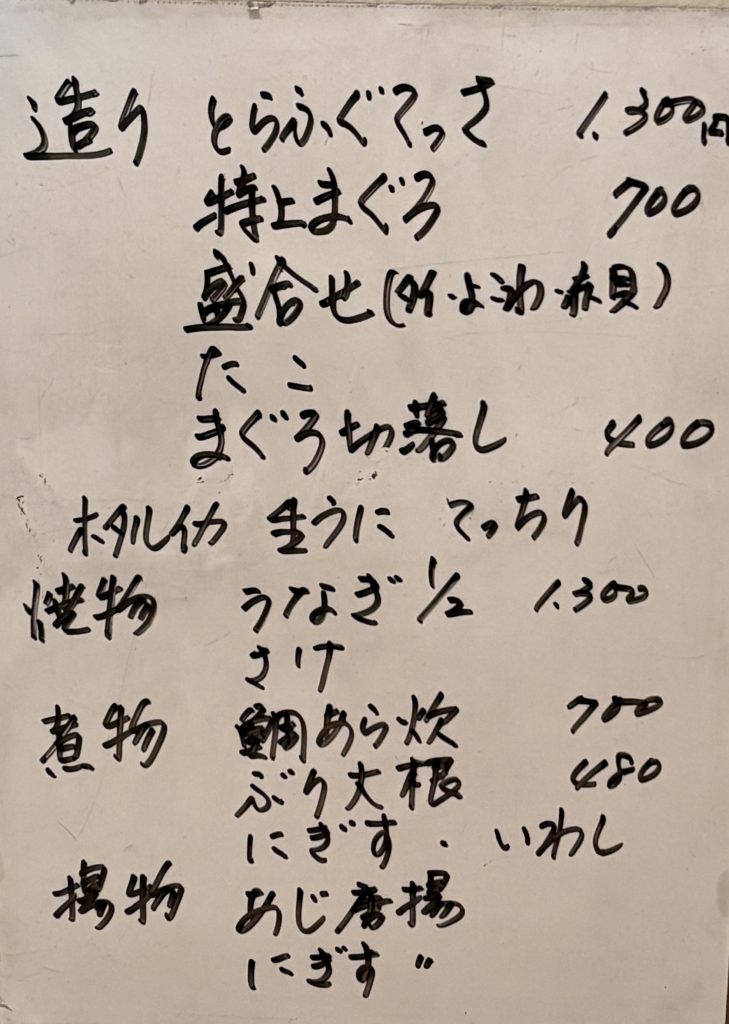 造り とらふぐてっさ 1.300円
特上まぐろ 700
盛合せ(タイ・よこわ・赤貝)
たこ
まぐろ切落し 400
ホタルイカ 生うに てっちり
焼物 うなぎ 1/2 1.300
さけ
煮物 鯛あら炊 700
ぶり大根 480
にぎす・いわし
揚物 あじ唐揚
にぎす 〃